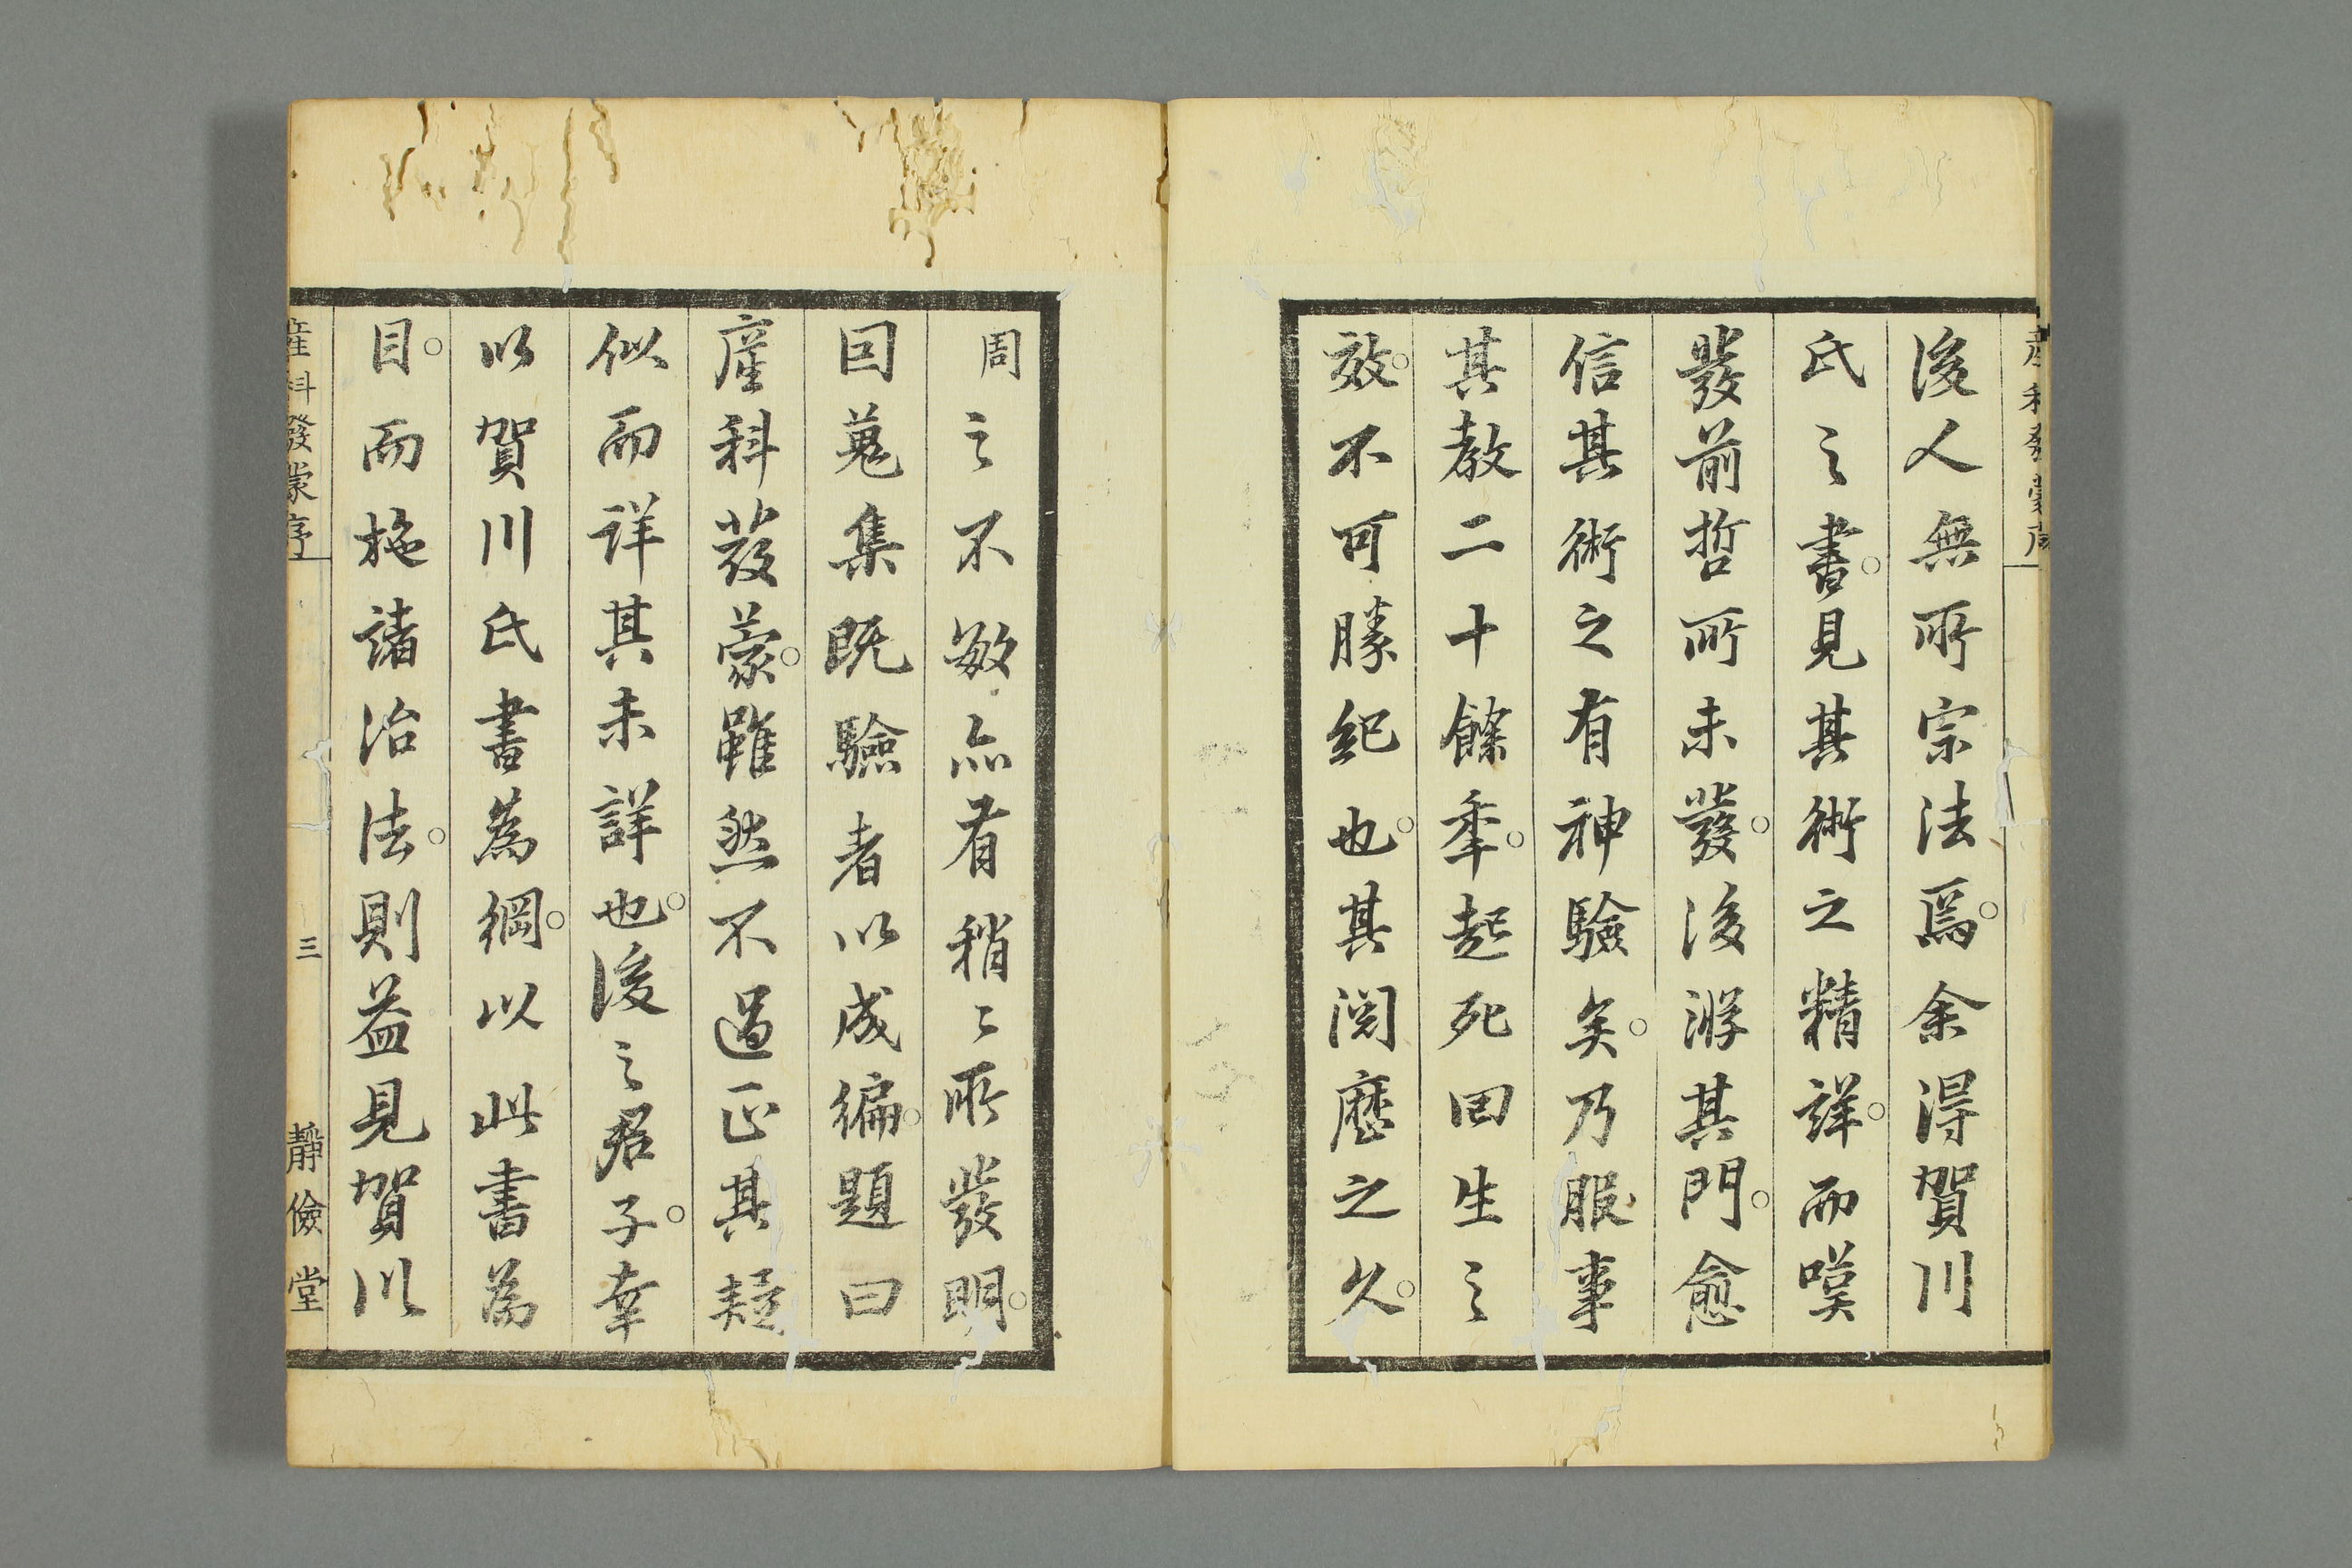 產科發蒙序
後人無所宗法焉。余得賀川
氏之書。見其術之精詳。而嘆
發前哲所未發。後游其門。愈
信其術之有神驗矣。乃服事
其教二十餘年。起死回生之
效。不可勝紀也。其閱歷之久。
周之不敏亦有稍〻所發明。
因蒐集既驗者以成編。題曰
產科發蒙。雖然不過正其疑
似而詳其未詳也。後之君子。幸
以賀川氏書為綱。以此書為
目。而施諸治法。則益見賀川
產科發蒙序
三
靜儉堂